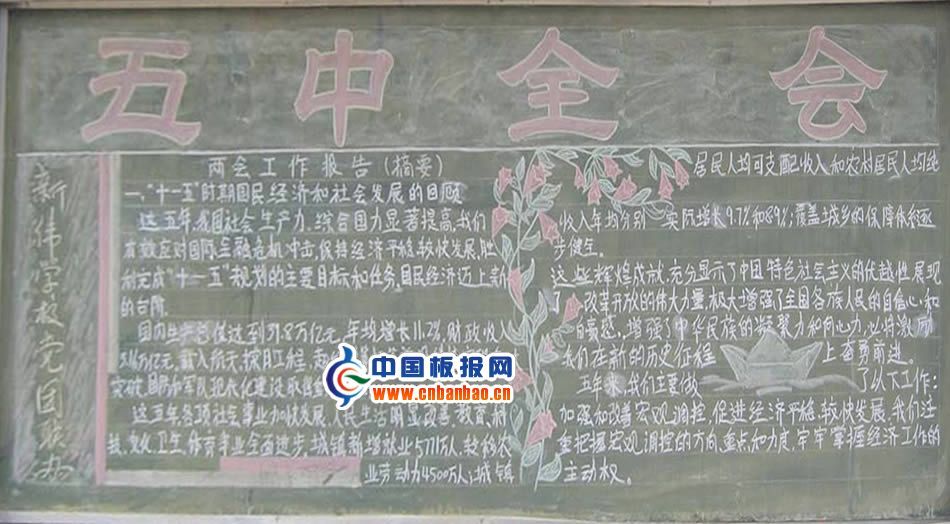 五中全会
新伟学校党团联办
两会工作报告(摘要)
一、"十一五"时期国民经济和社会发展的回顾
这五年我国社会生产力、综合国力显著提高,我们
有效应对国际金融危机冲击,保持经济平稳较快发展,胜
利完成"十一五"规划的主要目标和任务,国民经济迈上新
的台阶。
国内生产总值达到39.8万亿元,年均增长11.2%,财政收入
万亿元
这五年各项社会事业加快发展,人民生活明显改善,教育、科
技、文化、卫生、体育事业全面进步,城镇新增就业5771万人,转移农
业劳动力4500万人;城镇
居民人均可支配收入和农村居民人均纯
收入年均分别 实际增长9.7%和8.9%;覆盖城乡的保障体系逐
步健全。
这些辉煌成就,充分显示了中国特色社会主义的优越性,展现
了 改革开放的伟大力量,极大增强了全国各族人民的自信心和
自豪感,增强了中华民族的凝聚力和向心力,必将激励
我们在新的历史征程 上奋勇前进。
五年来我们主要做 了以下工作:
加强和改善宏观调控,促进经济平稳较快发展,我们注
重把握宏观调控的方向、重点和力度,牢牢掌握经济工作的
主动权。
中国板报网
www.cnbanbao.cn